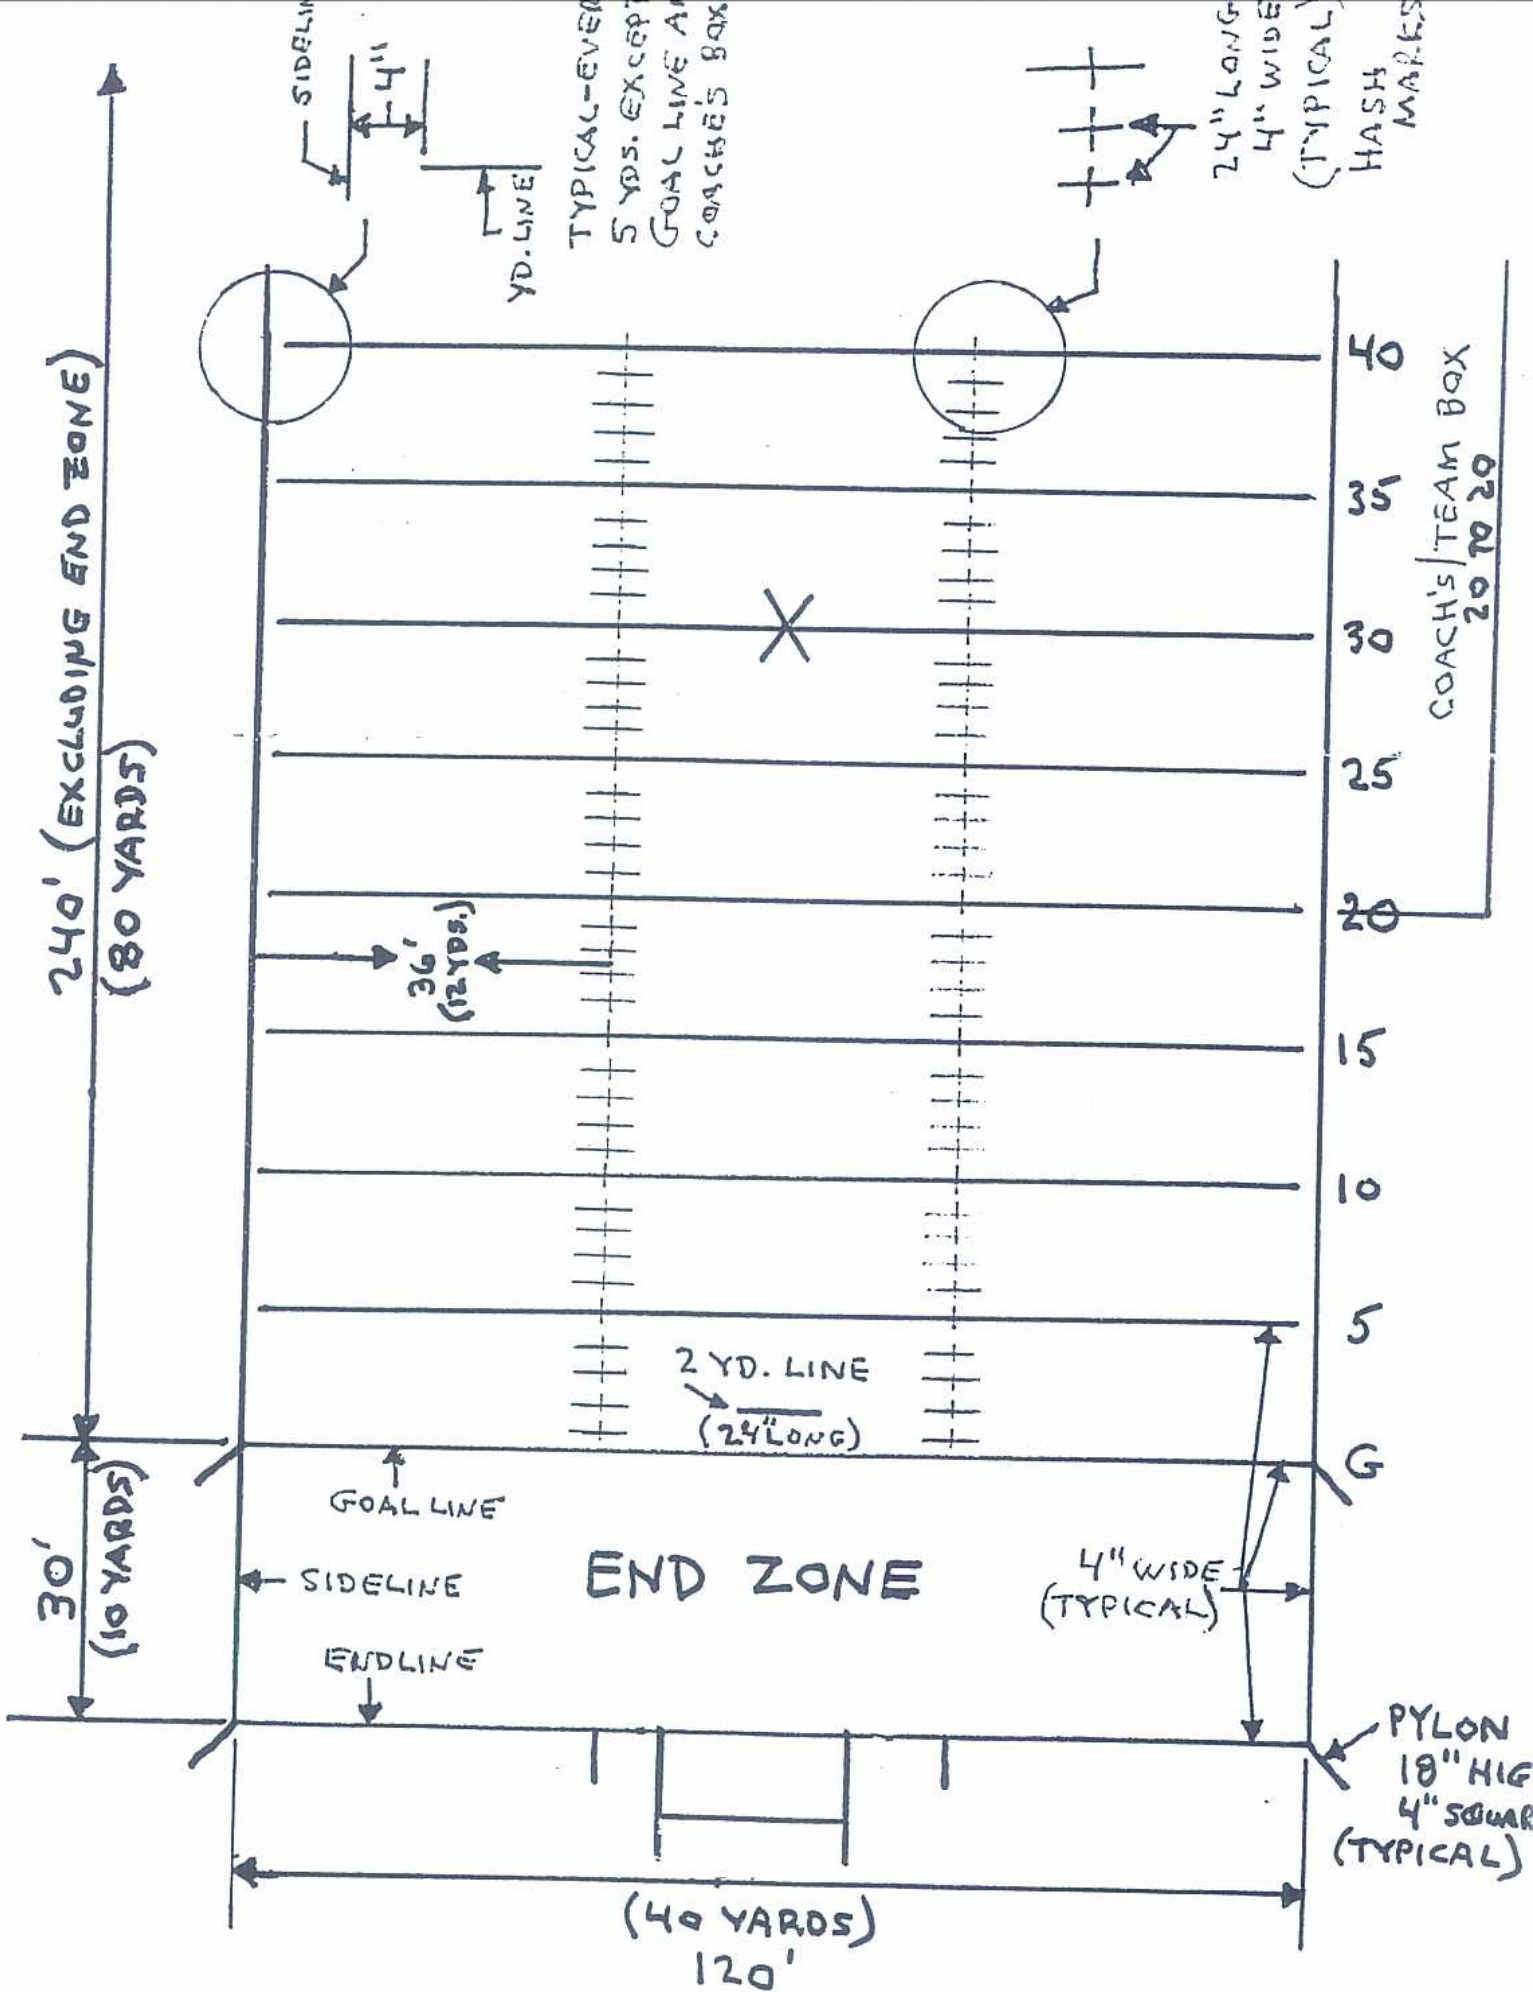 SIDELIN
4"
YD. LINE
TYPICAL-EVER
5 YDS. EXCEPT
GOAL LINE A
COACHE'S BOX
24" LONG
4" WIDE
(TYPICAL)
HASH
MARKS
240' (EXCLUDING END ZONE)
(80 YARDS)
40
35
30
25
20
15
10
5
G
COACH'S/TEAM BOX
20 TO 20
36'
(12 YDS.)
2 YD. LINE
(24" LONG)
GOAL LINE
30'
(10 YARDS)
SIDELINE
END ZONE
4" WIDE
(TYPICAL)
ENDLINE
PYLON
18" HIG
4" SQUAR
(TYPICAL)
(40 YARDS)
120'